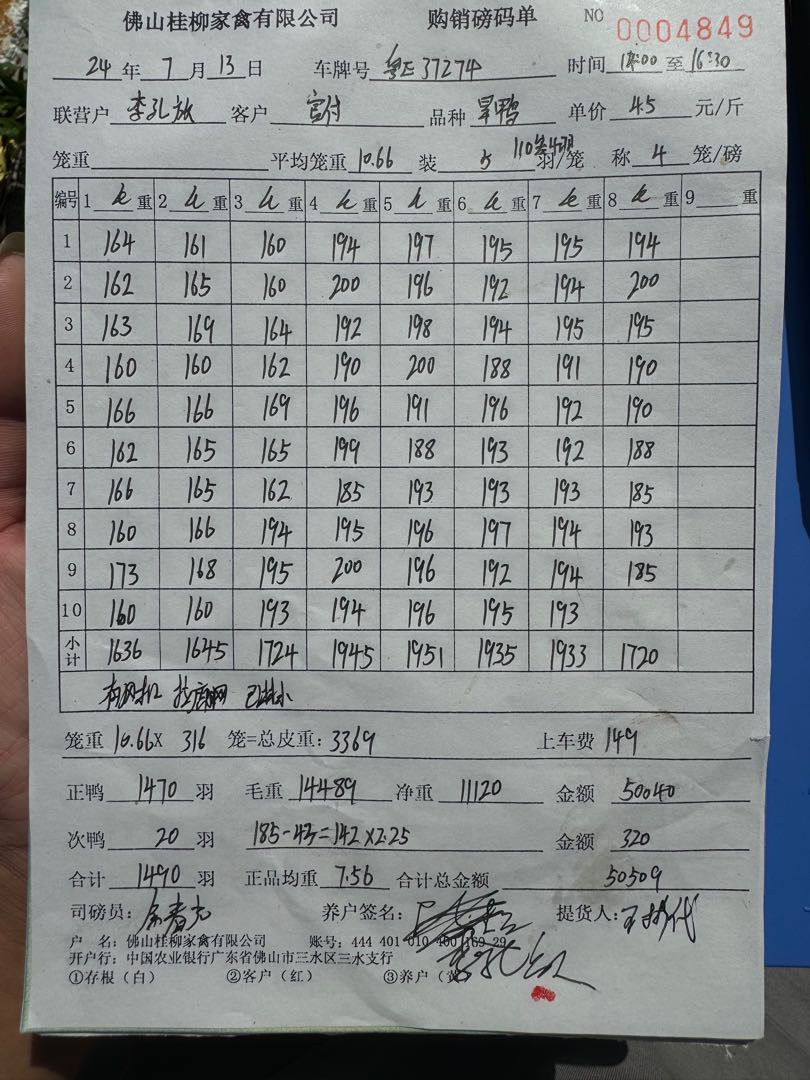 佛山桂柳家禽有限公司 购销磅码单 NO 0004849
24年7月13日 车牌号 粤E37274 时间 14:00至16:30
联营户 李孔放 客户 客户 品种 旱鸭 单价 4.5 元/斤
笼重 平均笼重 10.66 装 5 羽/笼 称 4 笼/磅
编号 1 重 2 重 3 重 4 重 5 重 6 重 7 重 8 重 9 重
1 164 161 160 194 197 195 195 194
2 162 165 160 200 196 192 194 200
3 163 169 164 192 198 194 195 195
4 160 160 162 190 200 188 191 190
5 166 166 169 196 191 196 192 190
6 162 165 165 199 188 193 192 188
7 166 165 162 185 193 193 193 185
8 160 166 194 195 196 197 194 193
9 173 168 195 200 196 192 194 185
10 160 160 193 194 196 195 193
小计 1636 1645 1724 1945 1951 1935 1933 1720
笼重 10.66X 316 笼=总皮重: 3369 上车费 149
正鸭 1470 羽 毛重 14489 净重 11120 金额 50040
次鸭 20 羽 185-43=142×2.25 金额 320
合计 1490 羽 正品均重 7.56 合计总金额 50509
司磅员: 养户签名: 提货人:
户 名: 佛山桂柳家禽有限公司 账号: 444 401 010 400 169 29
开户行: 中国农业银行广东省佛山市三水区三水支行
①存根(白) ②客户(红) ③养户(黄)